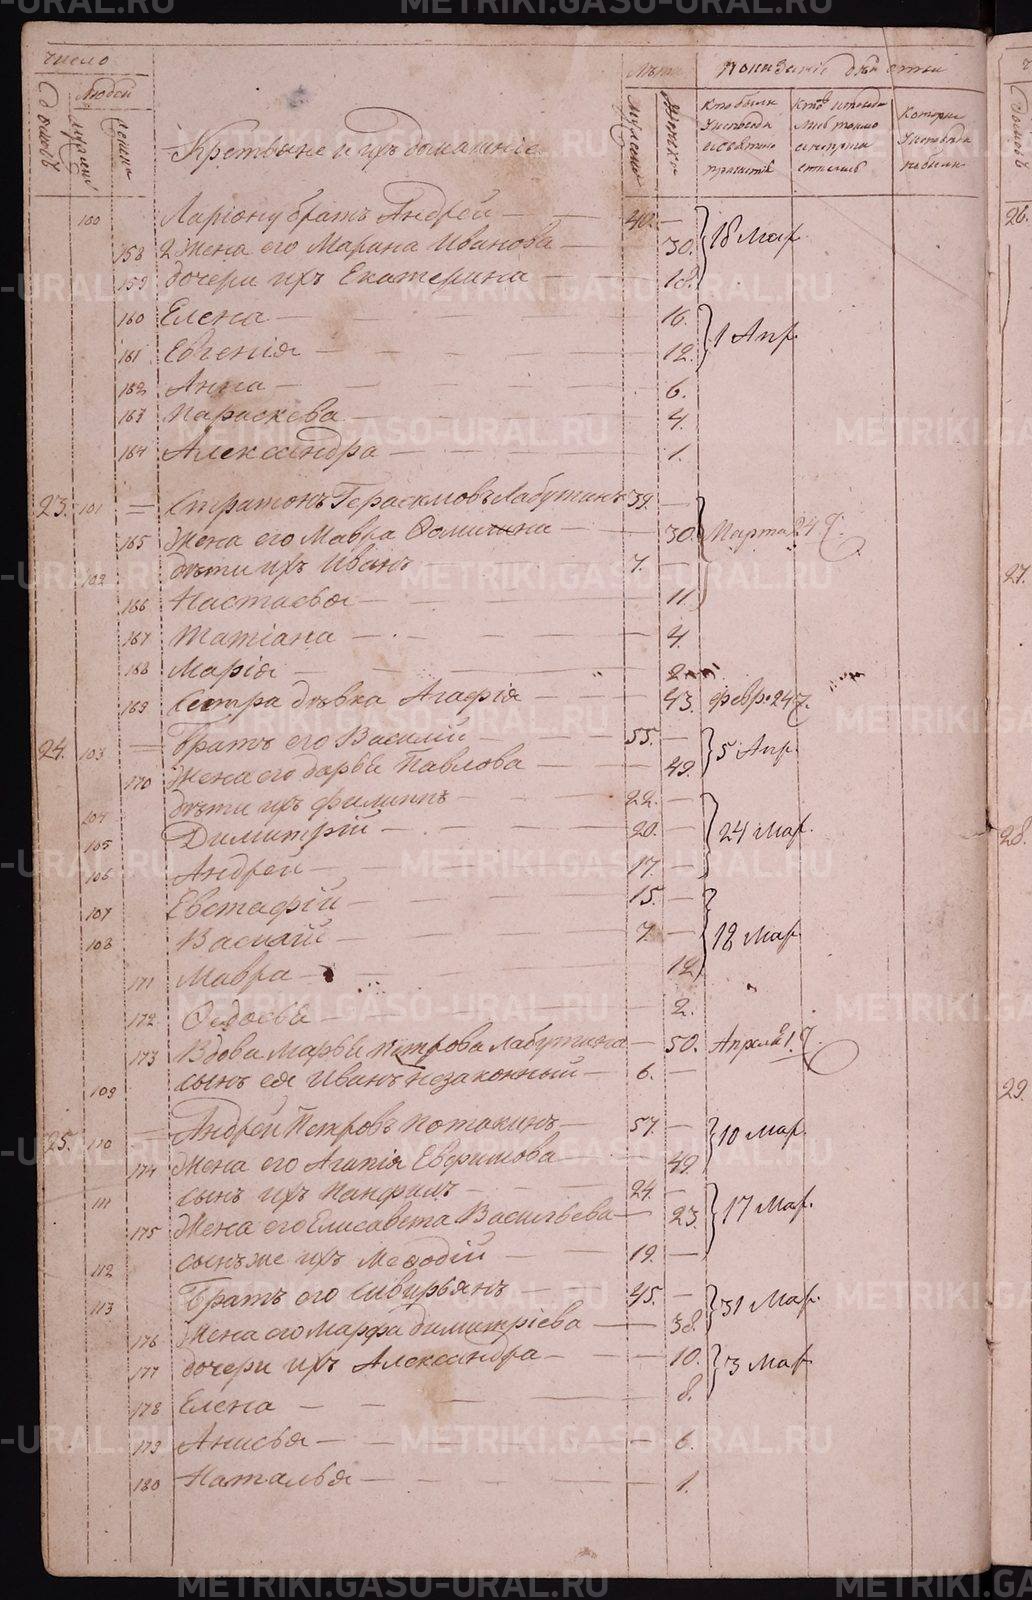 число
людей
Лѣта
Показаніе дѣйства
домовъ
мужеск
женск
Крестьяне и ихъ домашніе
мужеск
женск
Кто были
У исповѣди
и святаго
причастія
Кто
исповѣда
лись токмо
а не прича
стились
Которые
У исповѣди
не были
100 Ларіону братъ Андрей — 40. — 18 Мар.
158 2 Жена его Марина Иванова — 30.
159 дочери ихъ Екатерина — 18.
160 Елена — 16. 1 Апр.
161 Евгенія — 12.
162 Анна — 6.
163 Параскева — 4.
164 Александра — 1.
23. 101 = Стратонъ Герасимовъ Лабутинъ 39. — Марта 24
165 Жена его Мавра Фомишна — 30.
102 дѣти ихъ Иванъ 7. —
166 Настасья — 11.
167 Татіана — 4.
168 Марія — 2.
169 Сестра дѣвка Агафія — 43. февр. 24
24. 103 = Братъ его Василій — 55. — 5 Апр.
170 Жена его дарья Павлова — 49.
104 дѣти ихъ филиппъ — 22. — 24 Мар.
105 Димитрій — 20. —
106 Андрей — 17. —
107 Евстафій — 15. — 18 Мар.
108 Василій — 7. —
171 Мавра — 12.
172 Ѳедосья — 2.
173 Вдова Марья Петрова Лабутина — 50. Апреля 1.
109 сынъ ея Иванъ незаконный — 6. —
25. 110 = Андрей Петровъ Потакинъ — 57. — 10 Мар.
174 Жена его Агапія Евфимова — 49
111 сынъ ихъ Панфилъ — 24. — 17 Мар.
175 Жена его Елисавета Васильева — 23.
112 сынъ же ихъ Меѳодій — 19. —
113 Братъ его Сивирьянъ — 45. — 31 Мар.
176 Жена его Марфа димитріева — 38.
177 дочери ихъ Александра — 10. 3 Мар.
178 Елена — 8.
179 Анисья — 6.
180 Наталья — 1.
26.
27.
28.
29.
METRIKI.GASO-URAL.RU